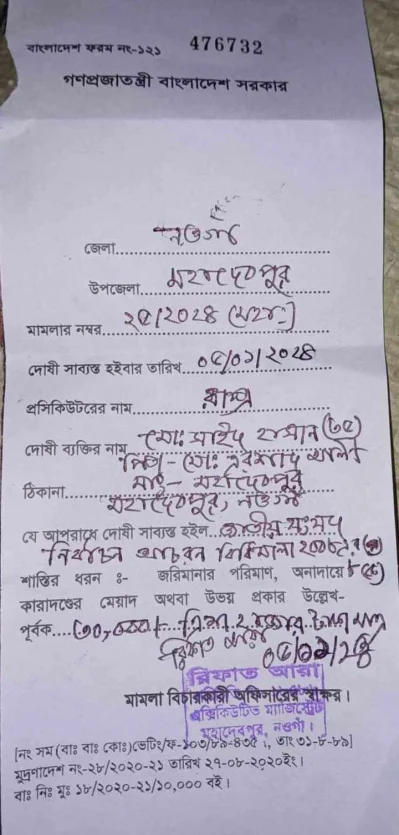 বাংলাদেশ ফরম নং-১২১ 476732
গণপ্রজাতন্ত্রী বাংলাদেশ সরকার
জেলা নওগাঁ
উপজেলা মহাদেবপুর
মামলার নম্বর ২৫/২০২৪ (মহা:)
দোষী সাব্যস্ত হইবার তারিখ ০৫/০১/২০২৪
প্রসিকিউটরের নাম রাষ্ট্র
দোষী ব্যক্তির নাম মো: সাইদ হাসান (৩৫)
পিতা - মো: এরশাদ আলী
ঠিকানা সাং - মহাদেবপুর
মহাদেবপুর, নওগাঁ
যে অপরাধে দোষী সাব্যস্ত হইল জাতীয় সংসদ
নির্বাচন আচরন বিধিমালা ২০০৮ এর
শাস্তির ধরন ঃ- জরিমানার পরিমাণ, অনাদায়ে
কারাদণ্ডের মেয়াদ অথবা উভয় প্রকার উল্লেখ-
পূর্বক (৩০,০০০/- ত্রিশ হাজার টাকা মাত্র
০৫/০১/২৪
রিফাত আরা
মামলা বিচারকারী অফিসারের স্বাক্ষর।
এক্সিকিউটিভ ম্যাজিস্ট্রেট
মহাদেবপুর, নওগাঁ।
[নং সম (বাঃ বাঃ কোঃ)ভেটিং/ফ-১০৩/৮৯-৪৩৫ ;, তাং ৩১-৮-৮৯]
মুদ্রণাদেশ নং-২৮/২০২০-২১ তারিখ ২৭-০৮-২০২০ইং।
বাঃ নিঃ মুঃ ১৮/২০২০-২১/১০,০০০ বই।